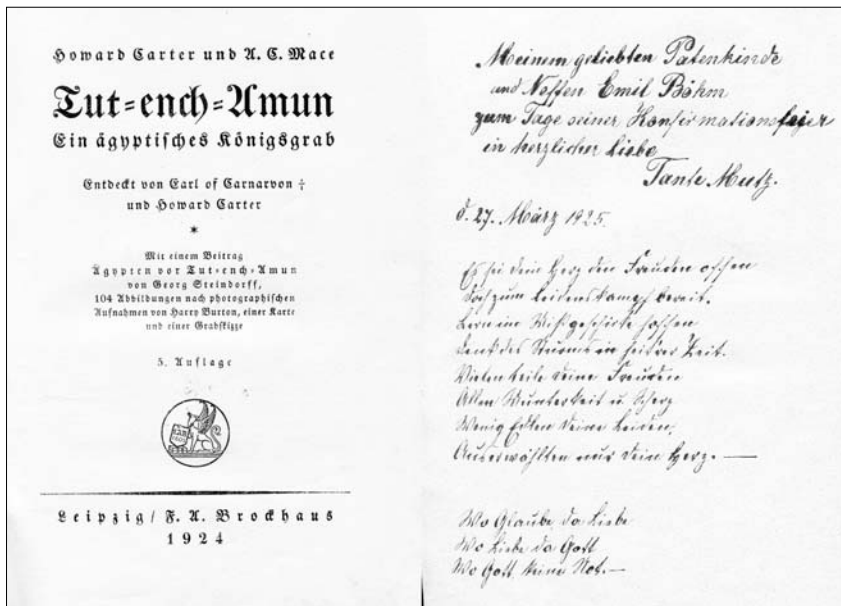 Howard Carter und A. C. Mace
Tut=ench=Amun
Ein ägyptisches Königsgrab
Entdeckt von Earl of Carnarvon ÷
und Howard Carter
*
Mit einem Beitrag
Ägypten vor Tut=ench=Amun
von Georg Steindorff,
104 Abbildungen nach photographischen
Aufnahmen von Harry Burton, einer Karte
und einer Grabskizze
5. Auflage
Leipzig / F. A. Brockhaus
1924
Meinem geliebten Patenkinde
und Neffen Emil Böhm
zum Tage seiner Konfirmationsfeier
in herzlicher Liebe
Tante Mutz.
d. 27. März 1925.
Es sei dein Herz den Freuden offen
doch zum Leidenskampf bereit.
Lern im Mißgeschicke hoffen
denk des Sturms in heitrer Zeit.
Vielen teile deine Freuden
Allen Munterkeit u. Scherz
Wenig Edlen deine Leiden,
Auserwählten nur dein Herz. —
Wo Glaube da Liebe
Wo Liebe da Gott
Wo Gott keine Not. —